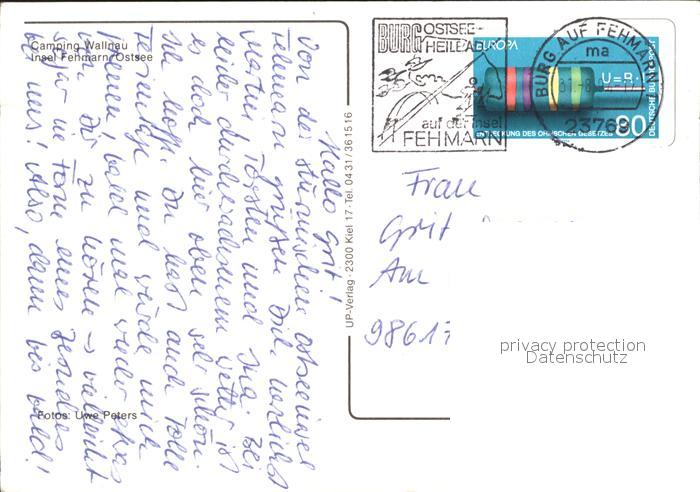 Camping Wallnau
Insel Fehmarn/Ostsee
Hallo Grit!
Von der stürmischen Ostseeinsel
Fehmarn grüßen Dich herzlichst
Martin, Torsten und Bei
leider durchwachsenem Wetter ist
es doch hier oben sehr schön.
Ich hoffe, Du hast auch tolle
Ferientage und würde mich
freuen, bald mal wieder etwas
von Dir zu hören → vielleicht
sogar in Form eines Besuches
bei uns! Also, dann bis bald!
Fotos: Uwe Peters
UP-Verlag · 2300 Kiel 17 · Tel. 0431/361516
BURG OSTSEE-
HEILBAD
auf der Insel
FEHMARN
EUROPA
U=R·I
ENTDECKUNG DES OHMSCHEN GESETZES
80
DEUTSCHE BUNDESPOST
BURG AUF FEHMARN
ma
23769
Frau
Grit
Am
98617
privacy protection
Datenschutz